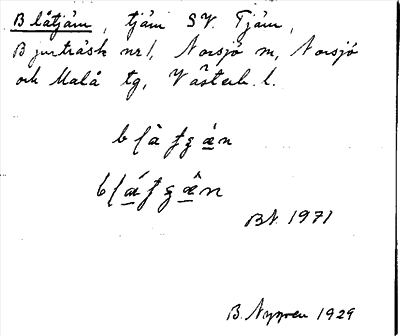 Blåtjärn, tjärn SV. Tjärn,
Bjurträsk nr 1, Norsjö sn, Norsjö
och Malå tg, Västerb. l.
BN. 1971
B. Nygren 1929